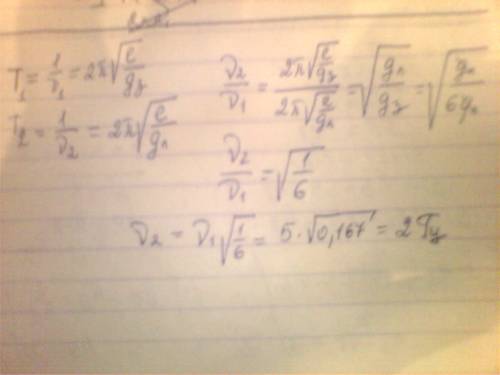 T₁ = 1/ν₁ = 2π√(ℓ/gз)
T₂ = 1/ν₂ = 2π√(ℓ/gл)
ν₂/ν₁ = 2π√(ℓ/gз) / 2π√(ℓ/gл) = √(gл/gз) = √(gл/6gл)
ν₂/ν₁ = √(1/6)
ν₂ = ν₁√(1/6) = 5·√(0,167) = 2 Гц